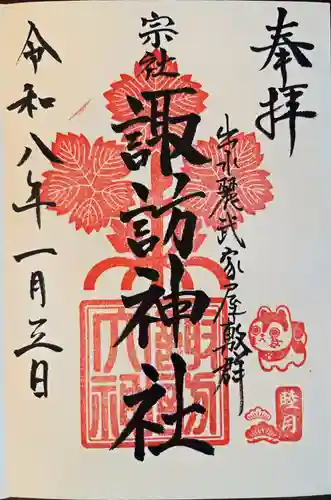 奉拝
出水麓武家屋敷群
宗社
諏訪神社
令和八年一月三日
睦月